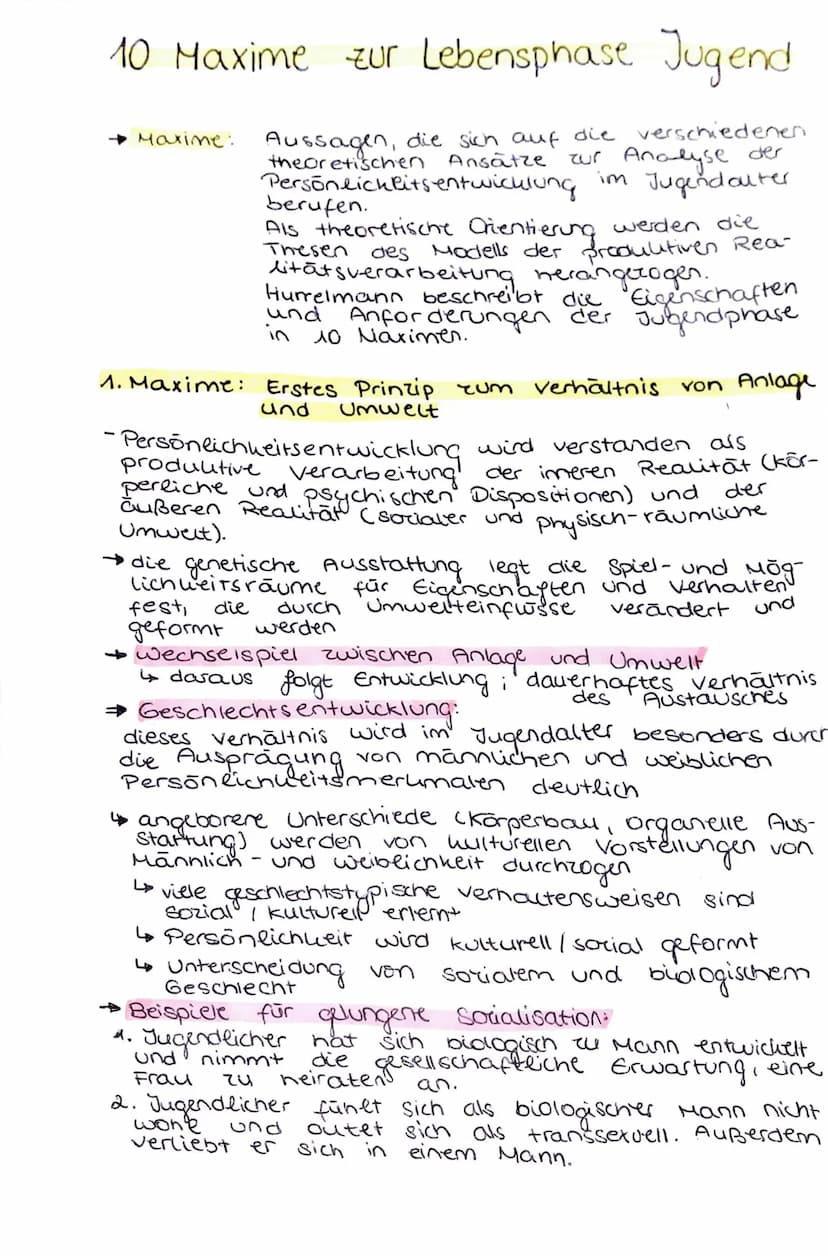 10 Maxime zur Lebensphase Jugend
→ Maxime: Aussagen, die sich auf die verschiedenen
theoretischen Ansätze zur Analyse der
Persönlichkeitsentwicklung im Jugendalter
berufen.
Als theoretische Orientierung werden die
Thesen des Modells der produktiven Rea-
litätsverarbeitung herangezogen.
Hurrelmann beschreibt die Eigenschaften
und Anforderungen der Jugendphase
in 10 Maximen.
1. Maxime: Erstes Prinzip zum Verhältnis von Anlage
und Umwelt
- Persönlichkeitsentwicklung wird verstanden als
produktive Verarbeitung der inneren Realität (kör-
perliche und psychischen Dispositionen) und der
äußeren Realität (sozialer und physisch-räumliche
Umwelt).
→ die genetische Ausstattung legt die Spiel- und Mög-
lichkeitsräume für Eigenschaften und Verhalten
fest, die durch Umwelteinflüsse verändert und
geformt werden
→ Wechselspiel zwischen Anlage und Umwelt
↳ daraus folgt Entwicklung; dauerhaftes Verhältnis
des Austausches
⇒ Geschlechtsentwicklung:
dieses Verhältnis wird im Jugendalter besonders durch
die Ausprägung von männlichen und weiblichen
Persönlichkeitsmerkmalen deutlich
↳ angeborene Unterschiede (Körperbau, organelle Aus-
stattung) werden von kulturellen Vorstellungen von
Männlich- und Weiblichkeit durchzogen
↳ viele geschlechtstypische Verhaltensweisen sind
sozial / kulturell erlernt
↳ Persönlichkeit wird kulturell / sozial geformt
↳ Unterscheidung von sozialem und biologischem
Geschlecht
→ Beispiele für gelungene Sozialisation:
1. Jugendlicher hat sich biologisch zu Mann entwickelt
und nimmt die gesellschaftliche Erwartung, eine
Frau zu heiraten an.
2. Jugendlicher fühlt sich als biologischer Mann nicht
wohl und outet sich als transsexuell. Außerdem
verliebt er sich in einem Mann.